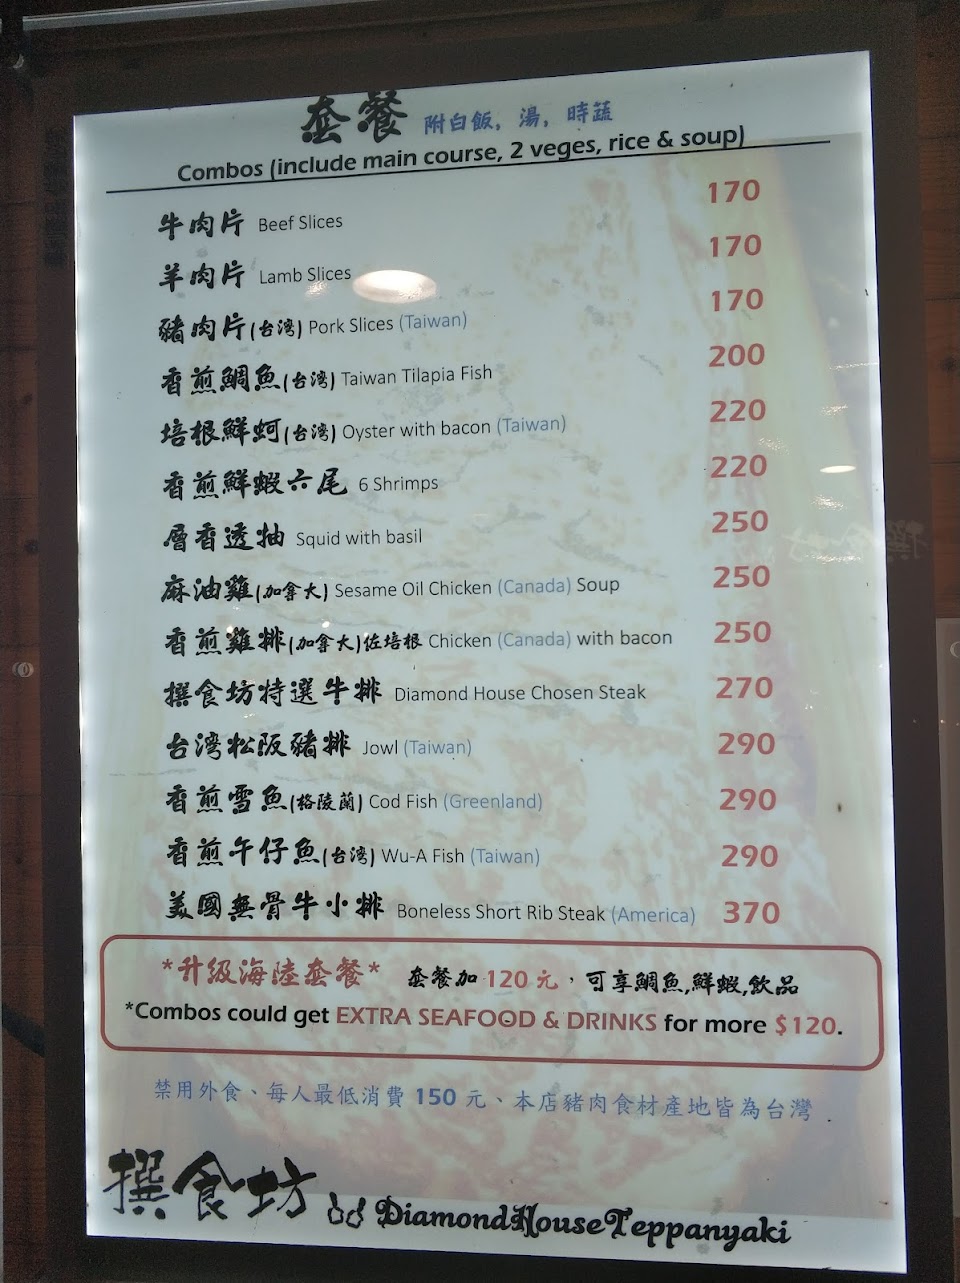 套餐 附白飯, 湯, 時蔬
Combos (include main course, 2 veges, rice & soup)
牛肉片 Beef Slices 170
羊肉片 Lamb Slices 170
豬肉片(台灣) Pork Slices (Taiwan) 170
香煎鯛魚(台灣) Taiwan Tilapia Fish 200
培根鮮蚵(台灣) Oyster with bacon (Taiwan) 220
香煎鮮蝦六尾 6 Shrimps 220
層香透抽 Squid with basil 250
麻油雞(加拿大) Sesame Oil Chicken (Canada) Soup 250
香煎雞排(加拿大)佐培根 Chicken (Canada) with bacon 250
撰食坊特選牛排 Diamond House Chosen Steak 270
台灣松阪豬排 Jowl (Taiwan) 290
香煎雪魚(格陵蘭) Cod Fish (Greenland) 290
香煎午仔魚(台灣) Wu-A Fish (Taiwan) 290
美國無骨牛小排 Boneless Short Rib Steak (America) 370
*升級海陸套餐* 套餐加 120 元，可享鯛魚,鮮蝦,飲品
*Combos could get EXTRA SEAFOOD & DRINKS for more $120.
禁用外食、每人最低消費 150 元、本店豬肉食材產地皆為台灣
撰食坊 DiamondHouseTeppanyaki